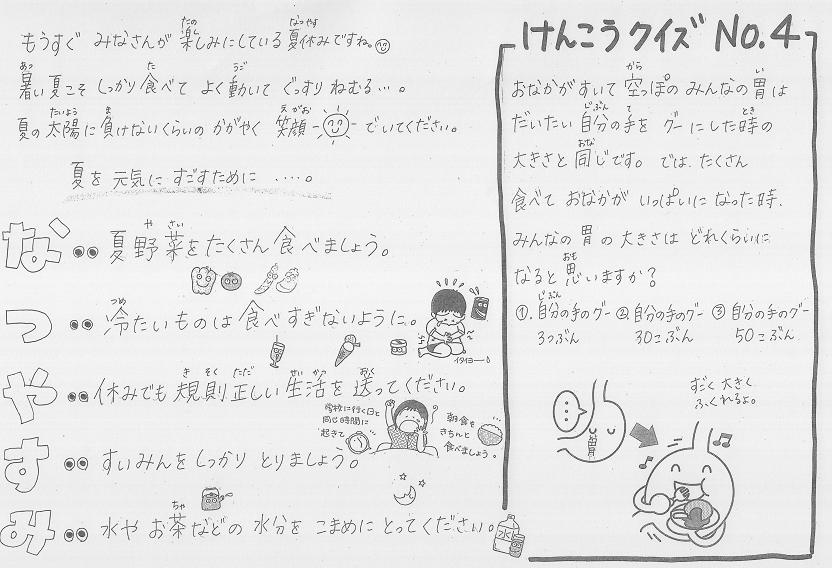 もうすぐ みなさんが 楽しみにしている 夏休みですね。
暑い夏こそ しっかり 食べて よく動いて ぐっすり ねむる…。
夏の 太陽に 負けないくらいの かがやく 笑顔 でいてください。
夏を 元気に すごすために ‥‥。
な 夏野菜をたくさん 食べましょう。
つ 冷たいものは 食べすぎないように。
イタイヨー
や 休みでも 規則正しい 生活を 送ってください。
学校に行く日と
同じ時間に
起きて
朝食を
きちんと
食べましょう。
す すいみんをしっかり とりましょう。
み 水や お茶などの 水分を こまめに とってください。
水
けんこうクイズ No.4
おなかがすいて 空っぽの みんなの 胃は
だいたい 自分の手を グーにした時の
大きさと 同じです。では、たくさん
食べて おなかが いっぱいに なった時、
みんなの 胃の 大きさは どれくらいに
なると 思いますか?
①.自分の手のグー 3つぶん
②自分の手のグー 30こぶん
③自分の手のグー 50こぶん
すごく 大きく
ふくれるよ。
胃